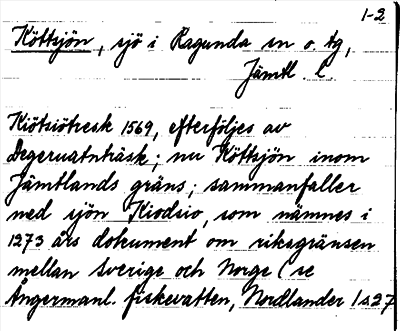 1-2
Köttsjön, sjö i Ragunda sn o. tg,
Jämtl. l.
Kiötsiötresk 1569, efterföljes av
Degeruatnträsk; nu Köttsjön inom
Jämtlands gräns; sammanfaller
med sjön Kiodsio, som nämnes i
1273 års dokument om riksgränsen
mellan Sverige och Norge (se
Ångermanl. fiskevatten, Nordlander 1 s.27